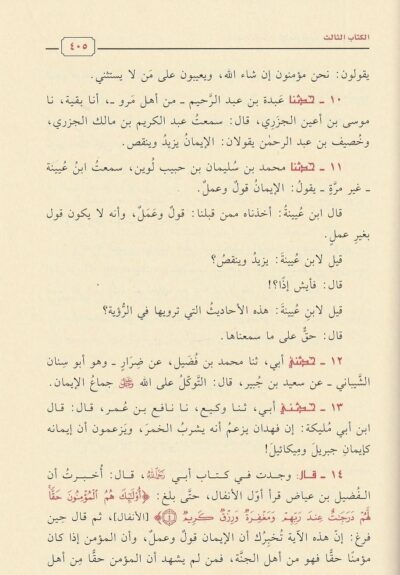 الكتاب الثالث
٤٠٥
يقولون: نحن مؤمنون إن شاء الله، ويعيبون على مَن لا يستثني.
١٠ ـ حدثنا عَبدة بن عبد الرَّحيم ـ من أهل مَرو ـ، أنا بقية، نا
موسى بن أعين الجزَرِي، قال: سمعتُ عبد الكريم بن مالك الجزري،
وخُصيف بن عبد الرحمٰن يقولان: الإيمانُ يزيدُ وينقص.
١١ ـ حدثنا محمد بن سُليمان بن حبيب لُوين، سمعتُ ابنُ عُيينة
ـ غير مرَّةٍ ـ يقولُ: الإيمانُ قولٌ وعملٌ.
قال ابن عُيينةُ: أخذناه ممن قبلنا: قولٌ وعَمَلٌ، وأنه لا يكون قول
بغيرِ عملٍ.
قيل لابن عُيينةَ: يزيدُ وينقصُ؟
قال: فأيش إذًا؟!
قيل لابنِ عُيينةَ: هذه الأحاديثُ التي ترويها في الرُّؤية؟
قال: حقٌّ على ما سمعناها.
١٢ ـ حدثني أبي، ثنا محمد بن فُضَيل، عن ضِرارٍ ـ وهو أبو سِنان
الشَّيباني ـ عن سعيد بن جُبير، قال: التَّوكّلُ على الله ﷻ جماعُ الإيمان.
١٣ ـ حدثني أبي، ثنا وكيع، نا نافع بن عُمر، قال: قال
ابن أبي مُليكة: إن فهدان يزعمُ أنه يشربُ الخمرَ، ويَزعمون أن إيمانه
كإيمانِ جبريلَ وميكائيلَ!
١٤ ـ قال: وجدت في كتاب أبي رَحِمَهُ اللَّهُ، قال: أُخبرتُ أن
الفُضيل بن عياض قرأ أوّل الأنفال، حتَّى بلغ: ﴿أُوْلَٰٓئِكَ هُمُ ٱلْمُؤْمِنُونَ حَقًّا
لَّهُمْ دَرَجَٰتٌ عِندَ رَبِّهِمْ وَمَغْفِرَةٌ وَرِزْقٌ كَرِيمٌ ۝٤﴾ [الأنفال]، ثم قال حين
فرغ: إنَّ هذه الآية تُخبِرُك أن الإيمان قولٌ وعملٌ، وأن المؤمن إذا كان
مؤمنًا حقًّا فهو من أهل الجنَّة، فمن لم يشهد أن المؤمن حقًّا مِن أهل